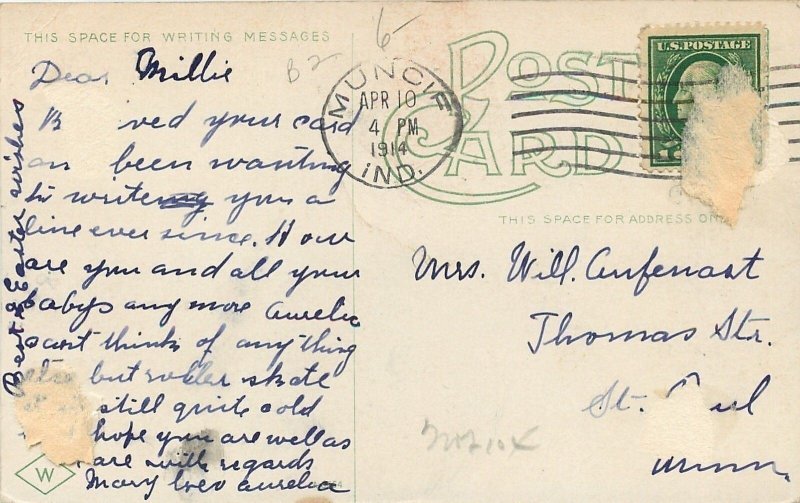 THIS SPACE FOR WRITING MESSAGES
Dear Millie
ved your card
an been wanting
to write you a
line ever since. How
are you and all your
babys any more Aurelia
cant thinks of anything
but roller skate
still quite cold
hope you are well as
are with regards
Mary Aurelia
Best of Easter wishes
W
6
B2
POST CARD
MUNCIE
APR 10
4 PM
1914
IND.
U.S. POSTAGE
THIS SPACE FOR ADDRESS ON
Mrs. Will. Aufenast
Thomas Str.
St. Paul
Minn.